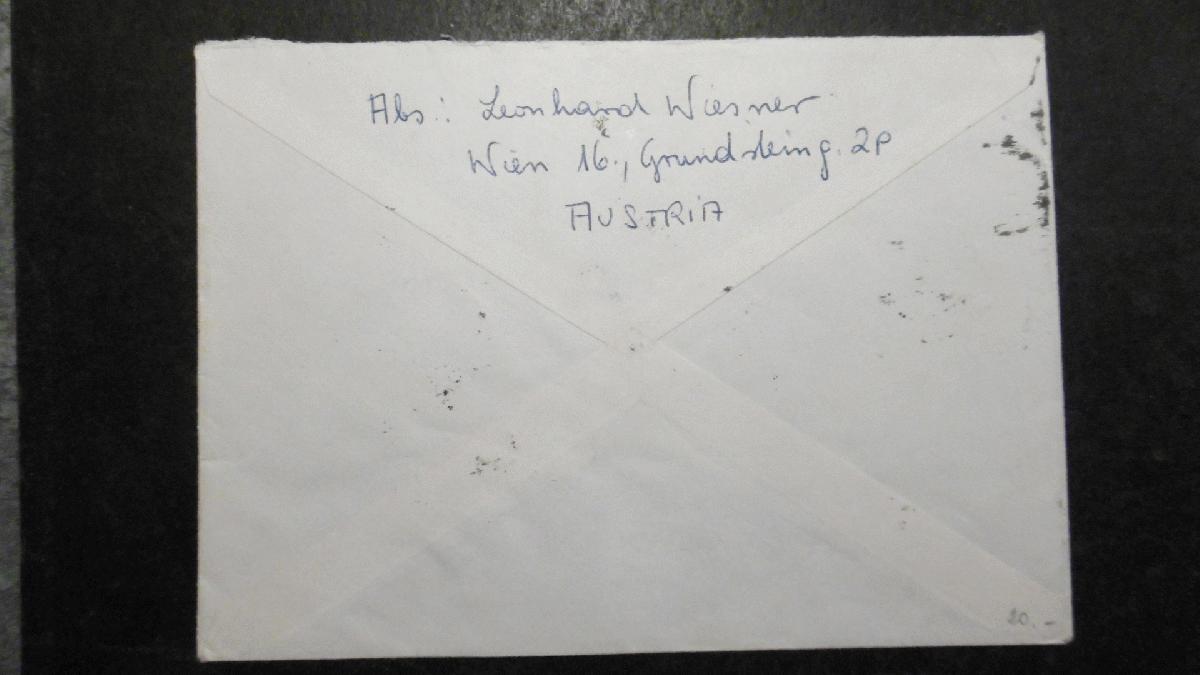 Abs.: Leonhard Wiesner
Wien 16., Grundsteing. 2P
AUSTRIA
20.-